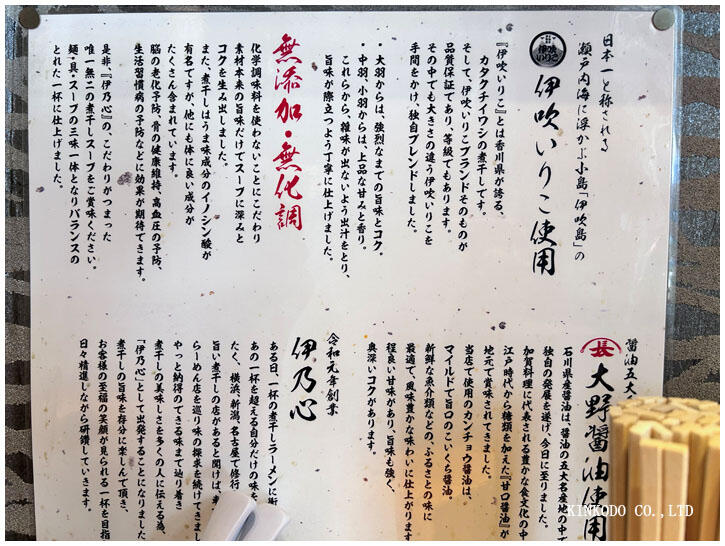 日本一と称される
瀬戸内海に浮かぶ小島「伊吹島」の
伊吹いりこ
伊吹いりこ使用
『伊吹いりこ』とは香川県が誇る、
カタクチイワシの煮干しです。
そして、伊吹いりこブランドそのものが
品質保証であり、等級でもあります。
その中でも大きさの違う伊吹いりこを
手間をかけ、独自ブレンドしました。
・大羽からは、強烈なまでの旨味とコク。
・中羽、小羽からは、上品な甘みと香り。
これらから、雑味が出ないよう出汁をとり、
旨味が際立つよう丁寧に仕上げました。
無添加・無化調
化学調味料を使わないことにこだわり
素材本来の旨味だけでスープに深みと
コクを生み出しました。
また、煮干しはうま味成分のイノシン酸が
有名ですが、他にも体に良い成分が
たくさん含まれています。
脳の老化予防、骨の健康維持、高血圧の予防、
生活習慣病の予防などに効果が期待できます。
是非、『伊乃心』の、こだわりがつまった
唯一無二の煮干しスープをご賞味ください。
麺・具・スープの三味一体となりバランスの
とれた一杯に仕上げました。
醤油五大
長
大野醤油使用
石川県産醤油は、醤油の五大名産地の中で
独自の発展を遂げ、今日に至りました。
加賀料理に代表される豊かな食文化の中
江戸時代から糖類を加えた『甘口醤油』が
地元で賞味されてきました。
当店で使用のカンチョウ醤油は、
マイルドで旨口のこいくち醤油。
新鮮な魚介類などの、ふるさとの味に
最適で、風味豊かな味わいに仕上がります
程良い甘味があり、旨味も強く、
奥深いコクがあります。
令和元年創業
伊乃心
ある日、一杯の煮干しラーメンに衝
あの一杯を超える自分だけの味を
たく、横浜、新潟、名古屋で修行
旨い煮干しの店があると聞けば、
らーめん店を巡り味の探求を続けてきまし
やっと納得のできる味まで辿り着き
煮干しの美味しさを多くの人に伝える為、
「伊乃心」として出発することになりました
煮干しの旨味を存分に楽しんで頂き、
お客様の至福の笑顔が見られる一杯を目指
日々精進しながら研鑽していきます。
KINKODO CO.,LTD